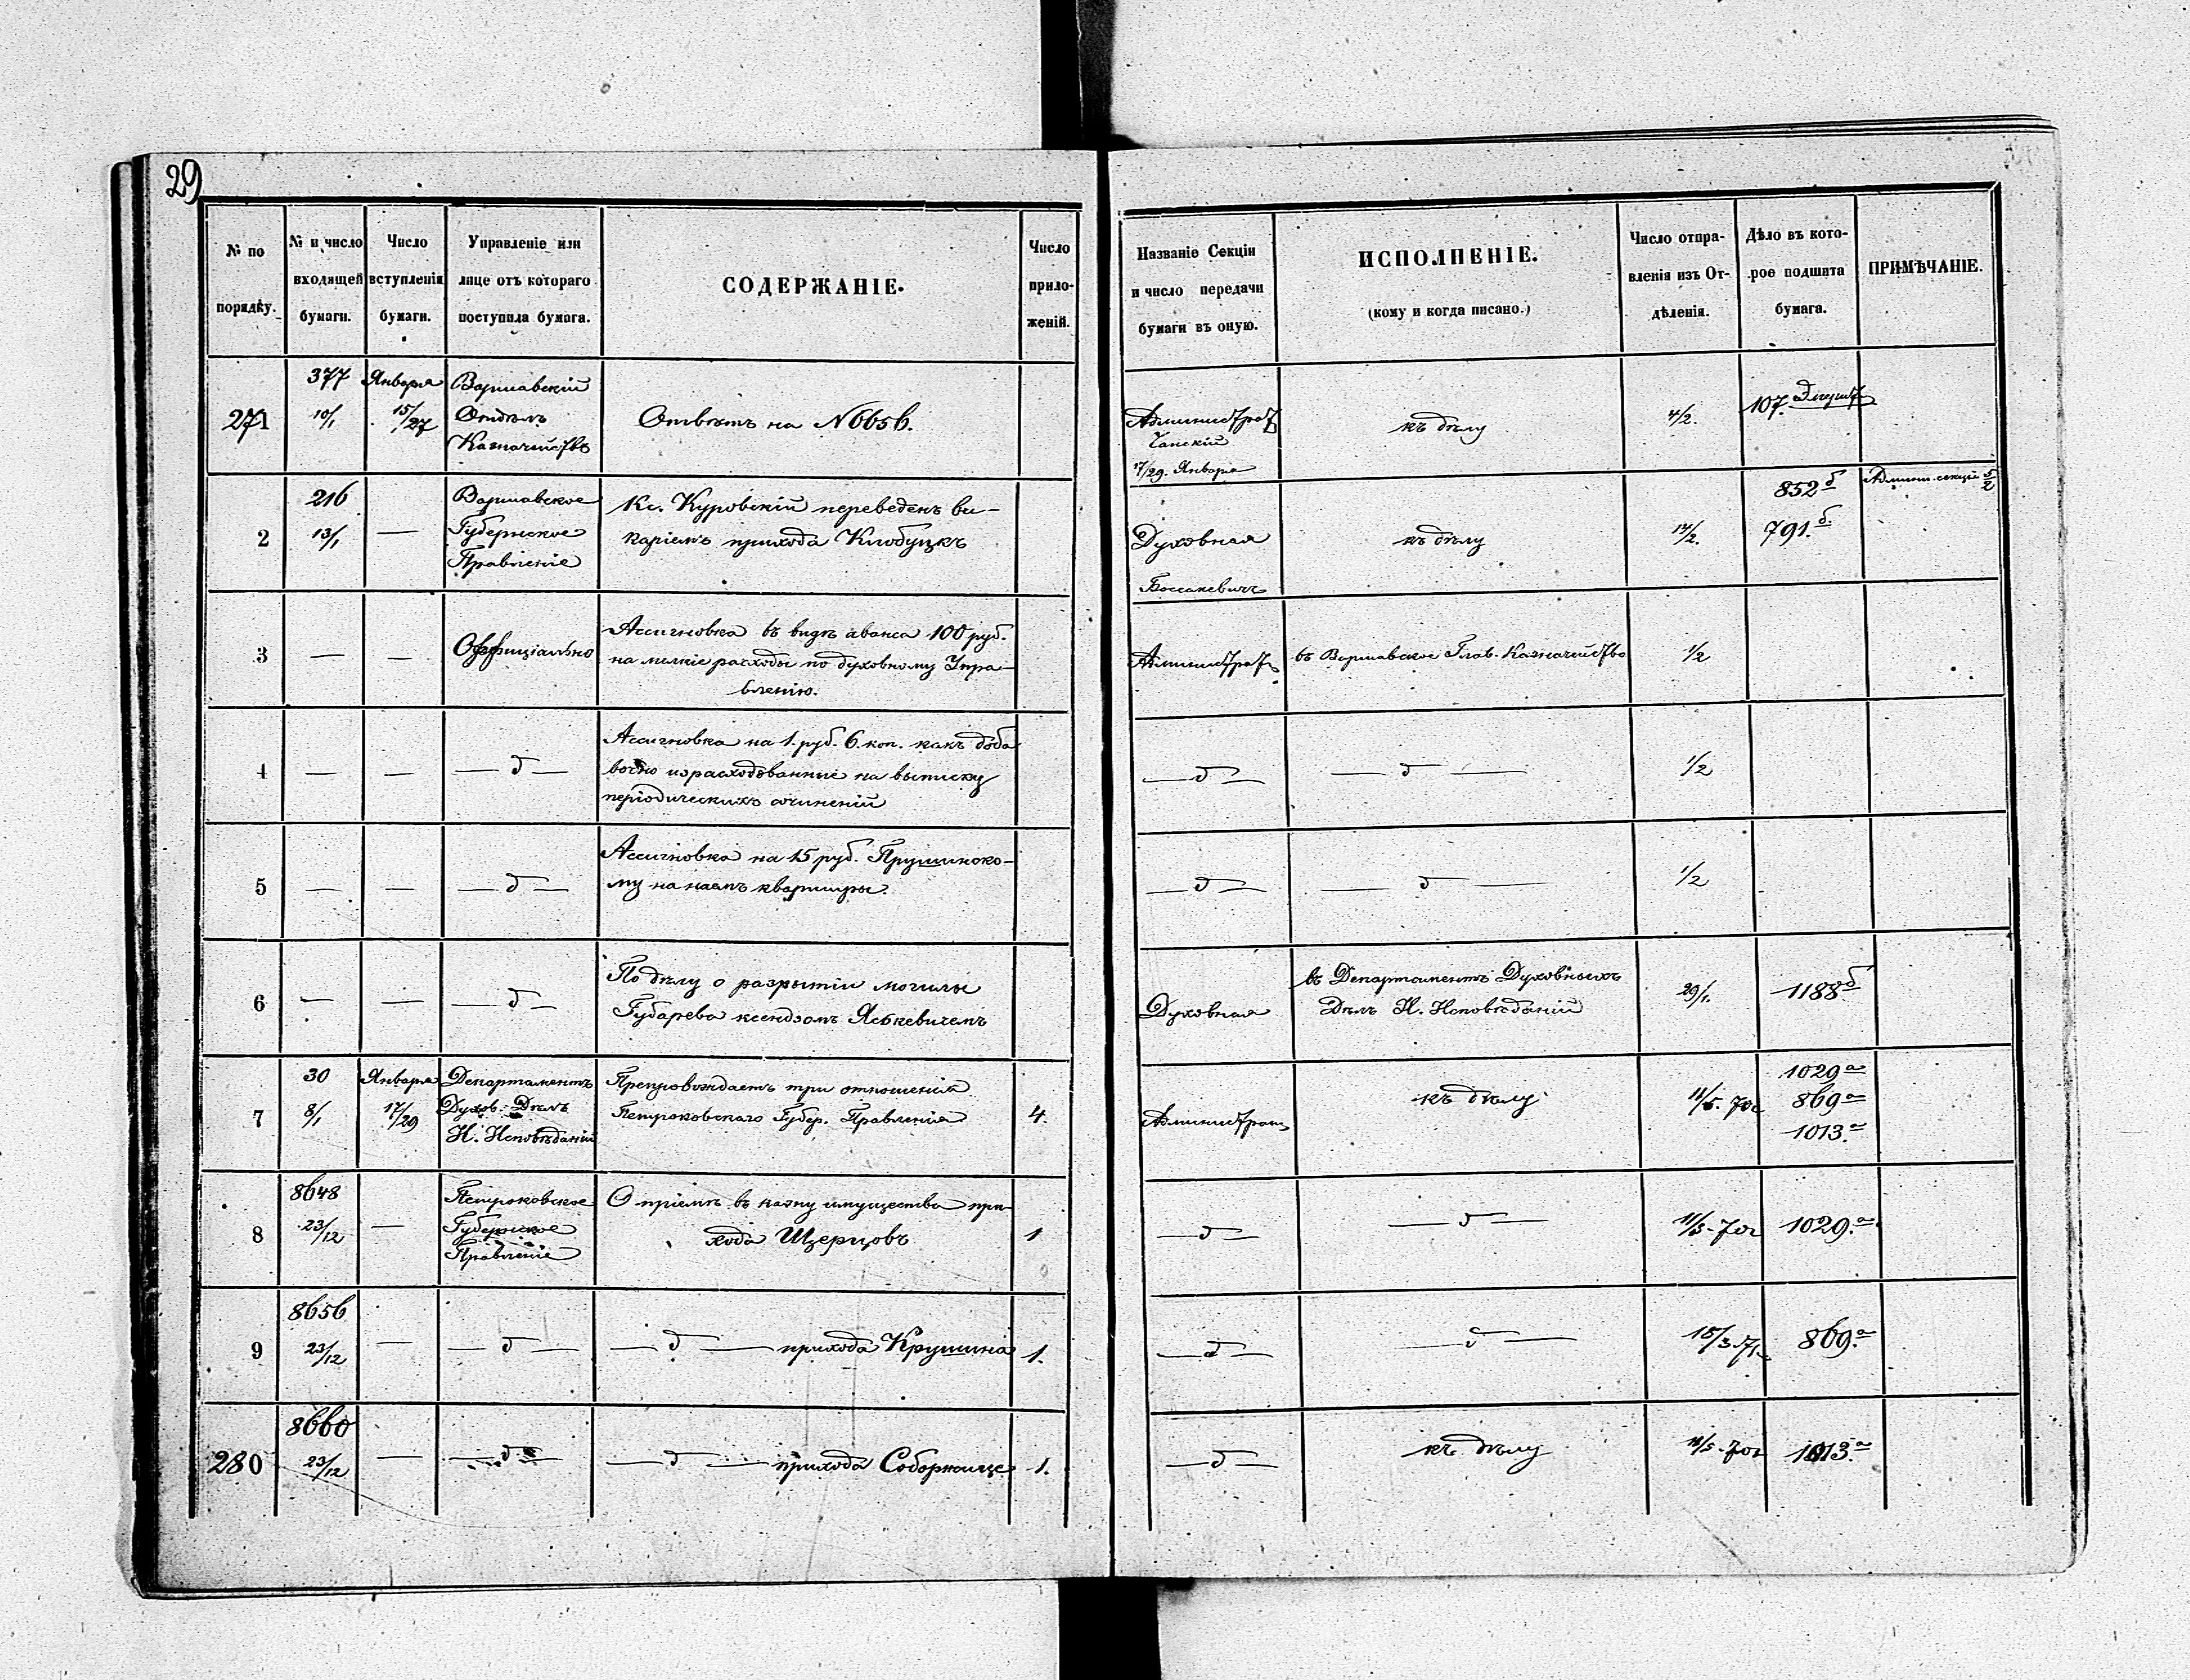 29
№ по порядку.
№ и число входящей бумаги.
Число вступленія бумаги.
Управленіе или лице отъ котораго поступила бумага.
СОДЕРЖАНІЕ.
Число приложеній.
Названіе Секціи и число передачи бумаги въ оную.
ИСПОЛНЕНІЕ.
(кому и когда писано.)
Число отправленія изъ Отдѣленія.
Дѣло въ которое подшита бумага.
ПРИМѢЧАНІЕ.
271
377
10/1
Января
15/27
Варшавскій
Отдѣлъ
Казначейства
Отвѣтъ на № 6656.
Администрат
17/29. Января
къ дѣлу
4/2.
107.
2
216
13/1
—
Варшавское
Губернское
Правленіе
Кс. Куровскій переведенъ ви-
каріемъ прихода Клобуцкъ
Духовная
къ дѣлу
14/2.
852 б
791. б.
Админ. секціи 5/2
3
—
—
Оффиціально
Ассигновка въ видѣ аванса 100 руб.
на мелкіе расходы по духовному Упра-
вленію.
Администрат
въ Варшавское Глав. Казначейство
1/2
4
—
—
— д —
Ассигновка на 1. руб. 6. коп. какъ доба
вочно израсходованные на выписку
періодическихъ сочиненій
— д —
— д —
1/2
5
—
—
— д —
Ассигновка на 15 руб. Прушинско-
му на наемъ квартиры.
— д —
— д —
1/2
6
—
—
— д —
По дѣлу о разрытіи могилы
Губарева ксендзомъ Яськевичемъ
Духовная
въ Департаментъ Духовныхъ
Дѣлъ И. Исповѣданій
29/1.
1188 б
7
30
8/1
Января
17/29
Департаментъ
Духов. Дѣлъ
И. Исповѣданій
Препровождаетъ три отношенія
Петроковскаго Губер. Правленія
4.
Администрат
къ дѣлу
11/5. 70г
1029 а
869 а
1013. а
8
8648
23/12
—
Петроковское
Губернское
Правленіе
О пріемѣ въ казну имущества при-
хода Щерцовъ
1
— д —
— д —
11/5 - 70г
1029. а
9
8656
23/12
—
— д —
— д — прихода Крушина
1.
— д —
— д —
15/3 71
869. а
280
8660
23/12
—
— д —
— д — прихода Соборжице
1.
— д —
къ дѣлу
11/5 - 70г
1013. а